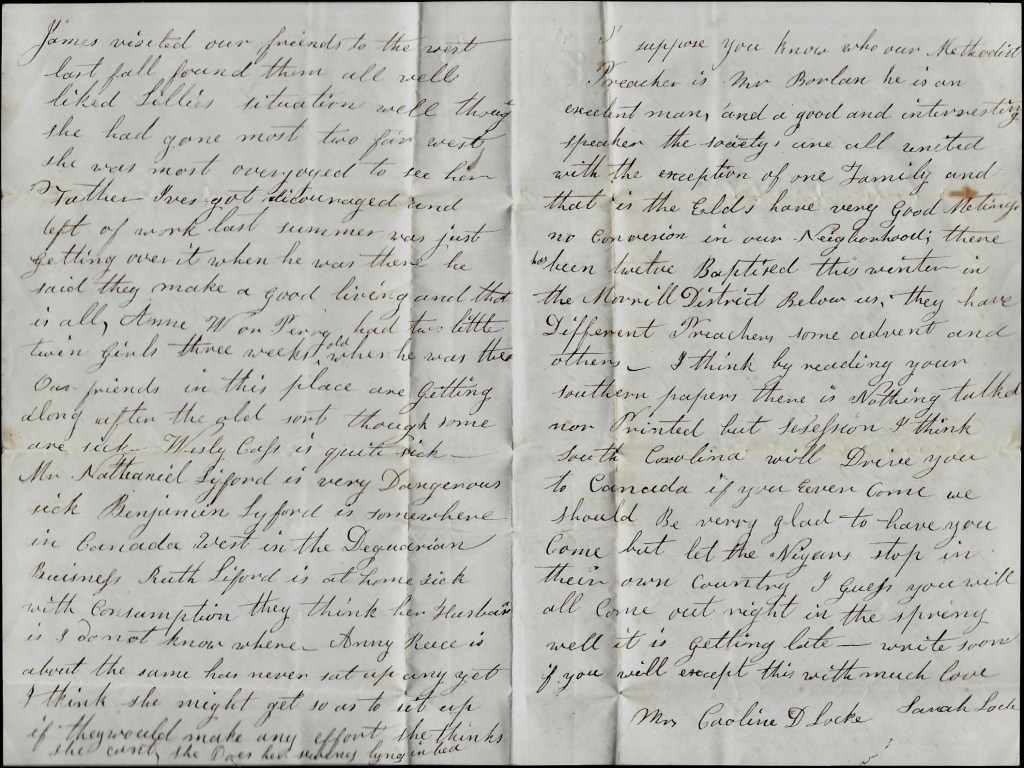 James visited our friends to the west
last fall found them all well
liked Lillies situation well thoug
she had gone most two far west
she was most overjoyed to see her
Father Ives got discouraged and
left of work last summer was just
getting over it when he was there he
said they make a good living and that
is all, Anne W on Perry had two little
twin girls three weeks old when he was there
Our friends in this place are Getting
along after the old sort though some
are sick Wesly Cass is quite sick —
Mr Nathaniel Lyford is very Dangerous
sick Benjamin Lyford is somewhere
in Canada West in the Deguarian
Buisness Ruth Liford is at home sick
with Consumption they think her Husban
is I do not know where — Anny Reece is
about the same has never sat up any yet
I think she might get so as to sit up
if they would make any effort she thinks
she cant, she Does her lying in bed
I suppose you know who our Methodist
Preacher is Mr Borlan he is an
excelent man, and a good and interresting
speaker the society are all united
with the exception of one Family and
that is the Elds have very Good Metings
no Conversion in our Neighborhood; there
has been twelve Baptised this winter in
the Morrill District Below us, they have
Different Preachers some advent and
others — I think by reading your
southern papers there is Nothing talked
nor Printed but sesession I think
South Carolina will Drive you
to Canada if you Ever Come we
should Be verry glad to have you
Come but let the Nigars stop in
their own Country I Guess you will
all Come out right in the spring
well it is getting late — write soon
if you will except this with much love
Mrs Caroline D Locke Sarah Lock